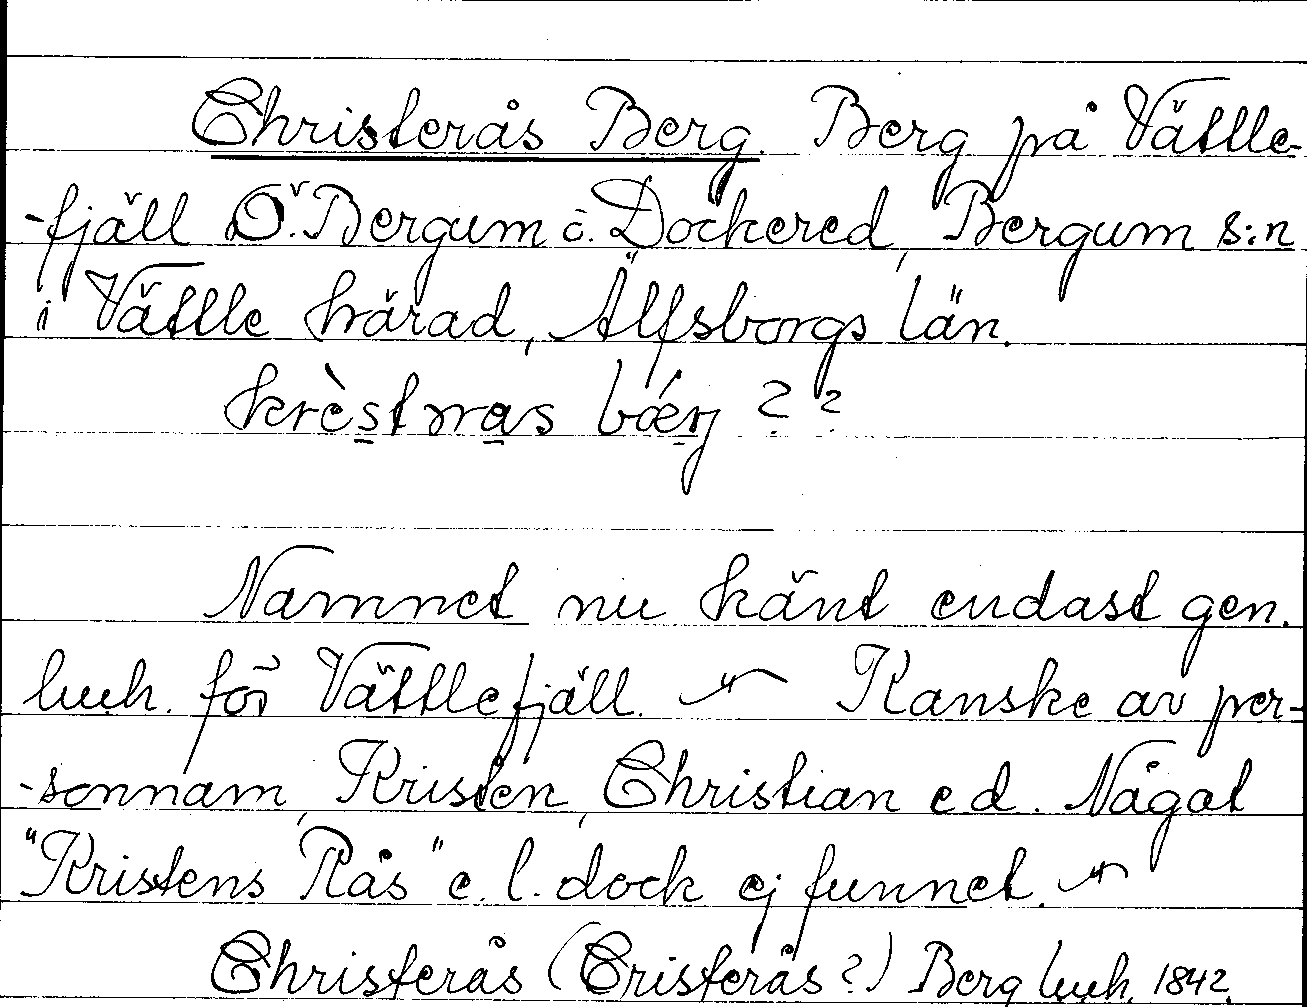 Christerås Berg. Berg på Vättle-
-fjäll Ö. Bergum o. Dockered, Bergum s:n
i Vättle härad, Älfsborgs län.
bærj ? ?
Namnet nu känt endast gen.
luch. för Vättlefjäll. Kanske av per-
-sonnamn, Kristen, Christian e d. Något
"Kristens Rås" e. l. dock ej funnet.
Christerås (Cristerås?) Berg luch 1842.